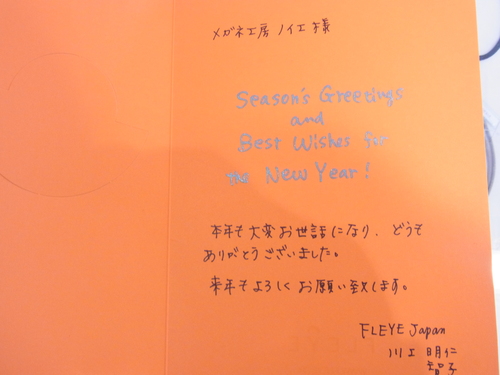 メガネ工房 ノイエ 様
Season's Greetings
and
Best Wishes for
the New Year!
本年も大変お世話になり、どうも
ありがとうございました。
来年もよろしくお願い致します。
FLEYE Japan
川工 明仁
智子